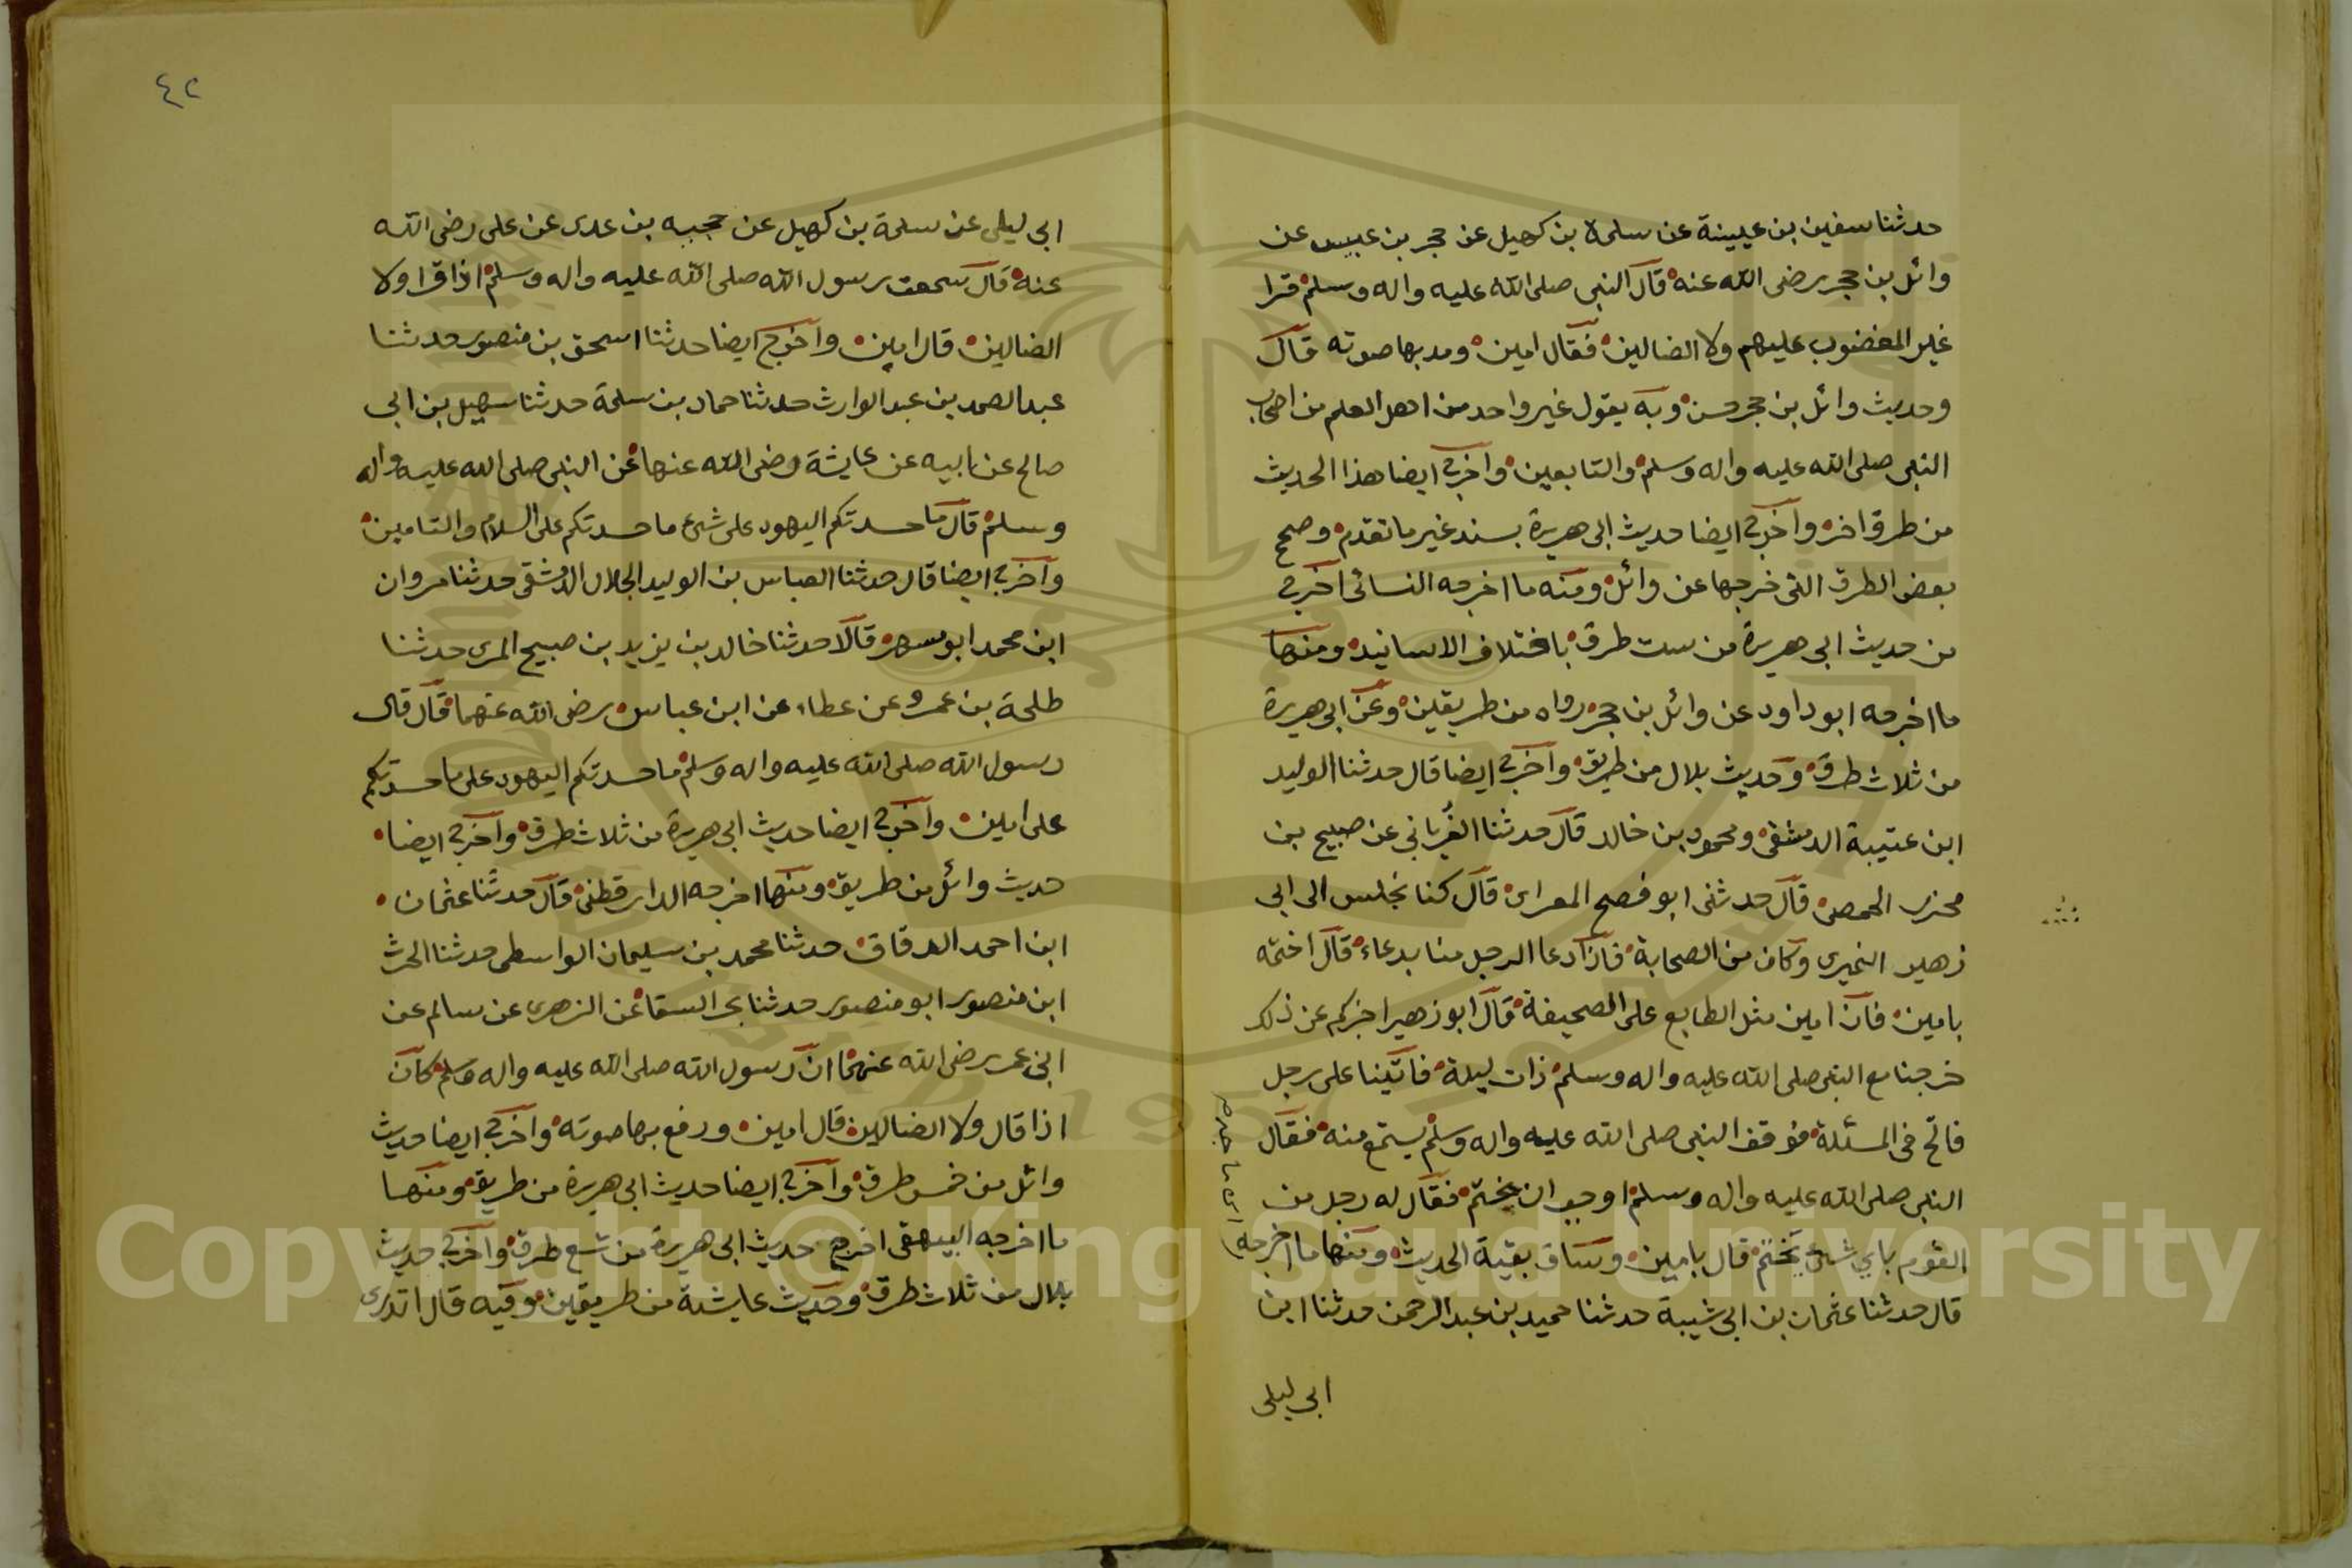 حدثنا سفين بن عيينة عن سلمة بن كهيل عن حجر بن عبيس عن
وائل بن حجر رضى الله عنه قال النبى صلى الله عليه واله وسلم قرا
غير المغضوب عليهم ولا الضالين فقال امين ومد بها صوته قال
وحديث وائل بن حجر حسن وبه يقول غير واحد من اهل العلم من اصحاب
النبى صلى الله عليه واله وسلم والتابعين واخرج ايضا هذا الحديث
من طرق اخر واخرج ايضا حديث ابى هريرة بسند غير ما تقدم وصحح
بعض الطرق التى خرجها عن وائل ومنه ما اخرجه النسائى اخرج
من حديث ابى هريرة من ست طرق باختلاف الاسانيد ومنها
ما اخرجه ابو داود عن وائل بن حجر رواه من طريقين وعن ابى هريرة
من ثلاث طرق وحديث بلال من طريق واخرج ايضا قال حدثنا الوليد
ابن عتيبة الدمشقى ومحمود بن خالد قال حدثنا الفريانى عن صبيح بن
محرر الحمصى قال حدثنى ابو فصح المعراى قال كنا نجلس الى ابى
زهير النميرى وكان من الصحابة فاذا دعا الرجل منا بدعاء قال اختمه
بامين فان امين مثل الطابع على الصحيفة قال ابو زهير اخبركم عن ذلك
خرجنا مع النبى صلى الله عليه واله وسلم ذات ليلة فاتينا على رجل
فالح فى المسئلة فوقف النبى صلى الله عليه واله وسلم يستمع منه فقال
النبى صلى الله عليه واله وسلم اوجب ان يختم فقال له رجل من
القوم باي شئ يختم قال بامين وساق بقية الحديث ومنها ما اخرجه
ابن ماجه
قال حدثنا عثمان بن ابى شيبة حدثنا حميد بن عبد الرحمن حدثنا ابن
ابى ليلى
٤٢
ابى ليلى عن سلمة بن كهيل عن حجيه بن عدى عن على رضى الله
عنه قال سمعت رسول الله صلى الله عليه واله وسلم اذا قرا ولا
الضالين قال امين واخرج ايضا حدثنا اسحق بن منصور حدثنا
عبد الصمد بن عبد الوارث حدثنا حماد بن سلمة حدثنا سهيل بن ابى
صالح عن ابيه عن عايشة رضى الله عنها عن النبى صلى الله عليه واله
وسلم قال ما حسدتكم اليهود على شئ ما حسدتكم على السلام والتامين
واخرج ايضا قال حدثنا العباس بن الوليد الجلال الدمشقى حدثنا مروان
ابن محمد ابو مسهر قالا حدثنا خالد بن يزيد بن صبيح المرى حدثنا
طلحة بن عمرو عن عطاء عن ابن عباس رضى الله عنهما قال قال
رسول الله صلى الله عليه واله وسلم ما حسدتكم اليهود على ما حسدتكم
على امين واخرج ايضا حديث ابى هريرة من ثلاث طرق واخرج ايضا
حديث وائل من طريق ومنها اخرجه الدارقطنى قال حدثنا عثمان
ابن احمد الدقاق حدثنا محمد بن سليمان الواسطى حدثنا الحرث
ابن منصور ابو منصور حدثنا بحر السقا عن الزهرى عن سالم عن
ابى عمر رضى الله عنهما ان رسول الله صلى الله عليه واله وسلم كان
اذا قال ولا الضالين قال امين ورفع بها صوته واخرج ايضا حديث
وائل من خمس طرق واخرج ايضا حديث ابى هريرة من طريق ومنها
ما اخرجه البيهقى اخرج حديث ابى هريرة من تسع طرق واخرج حديث
بلال من ثلاث طرق وحديث عايشة من طريقين وفيه قال اتدرى
Copyright © King Saud University